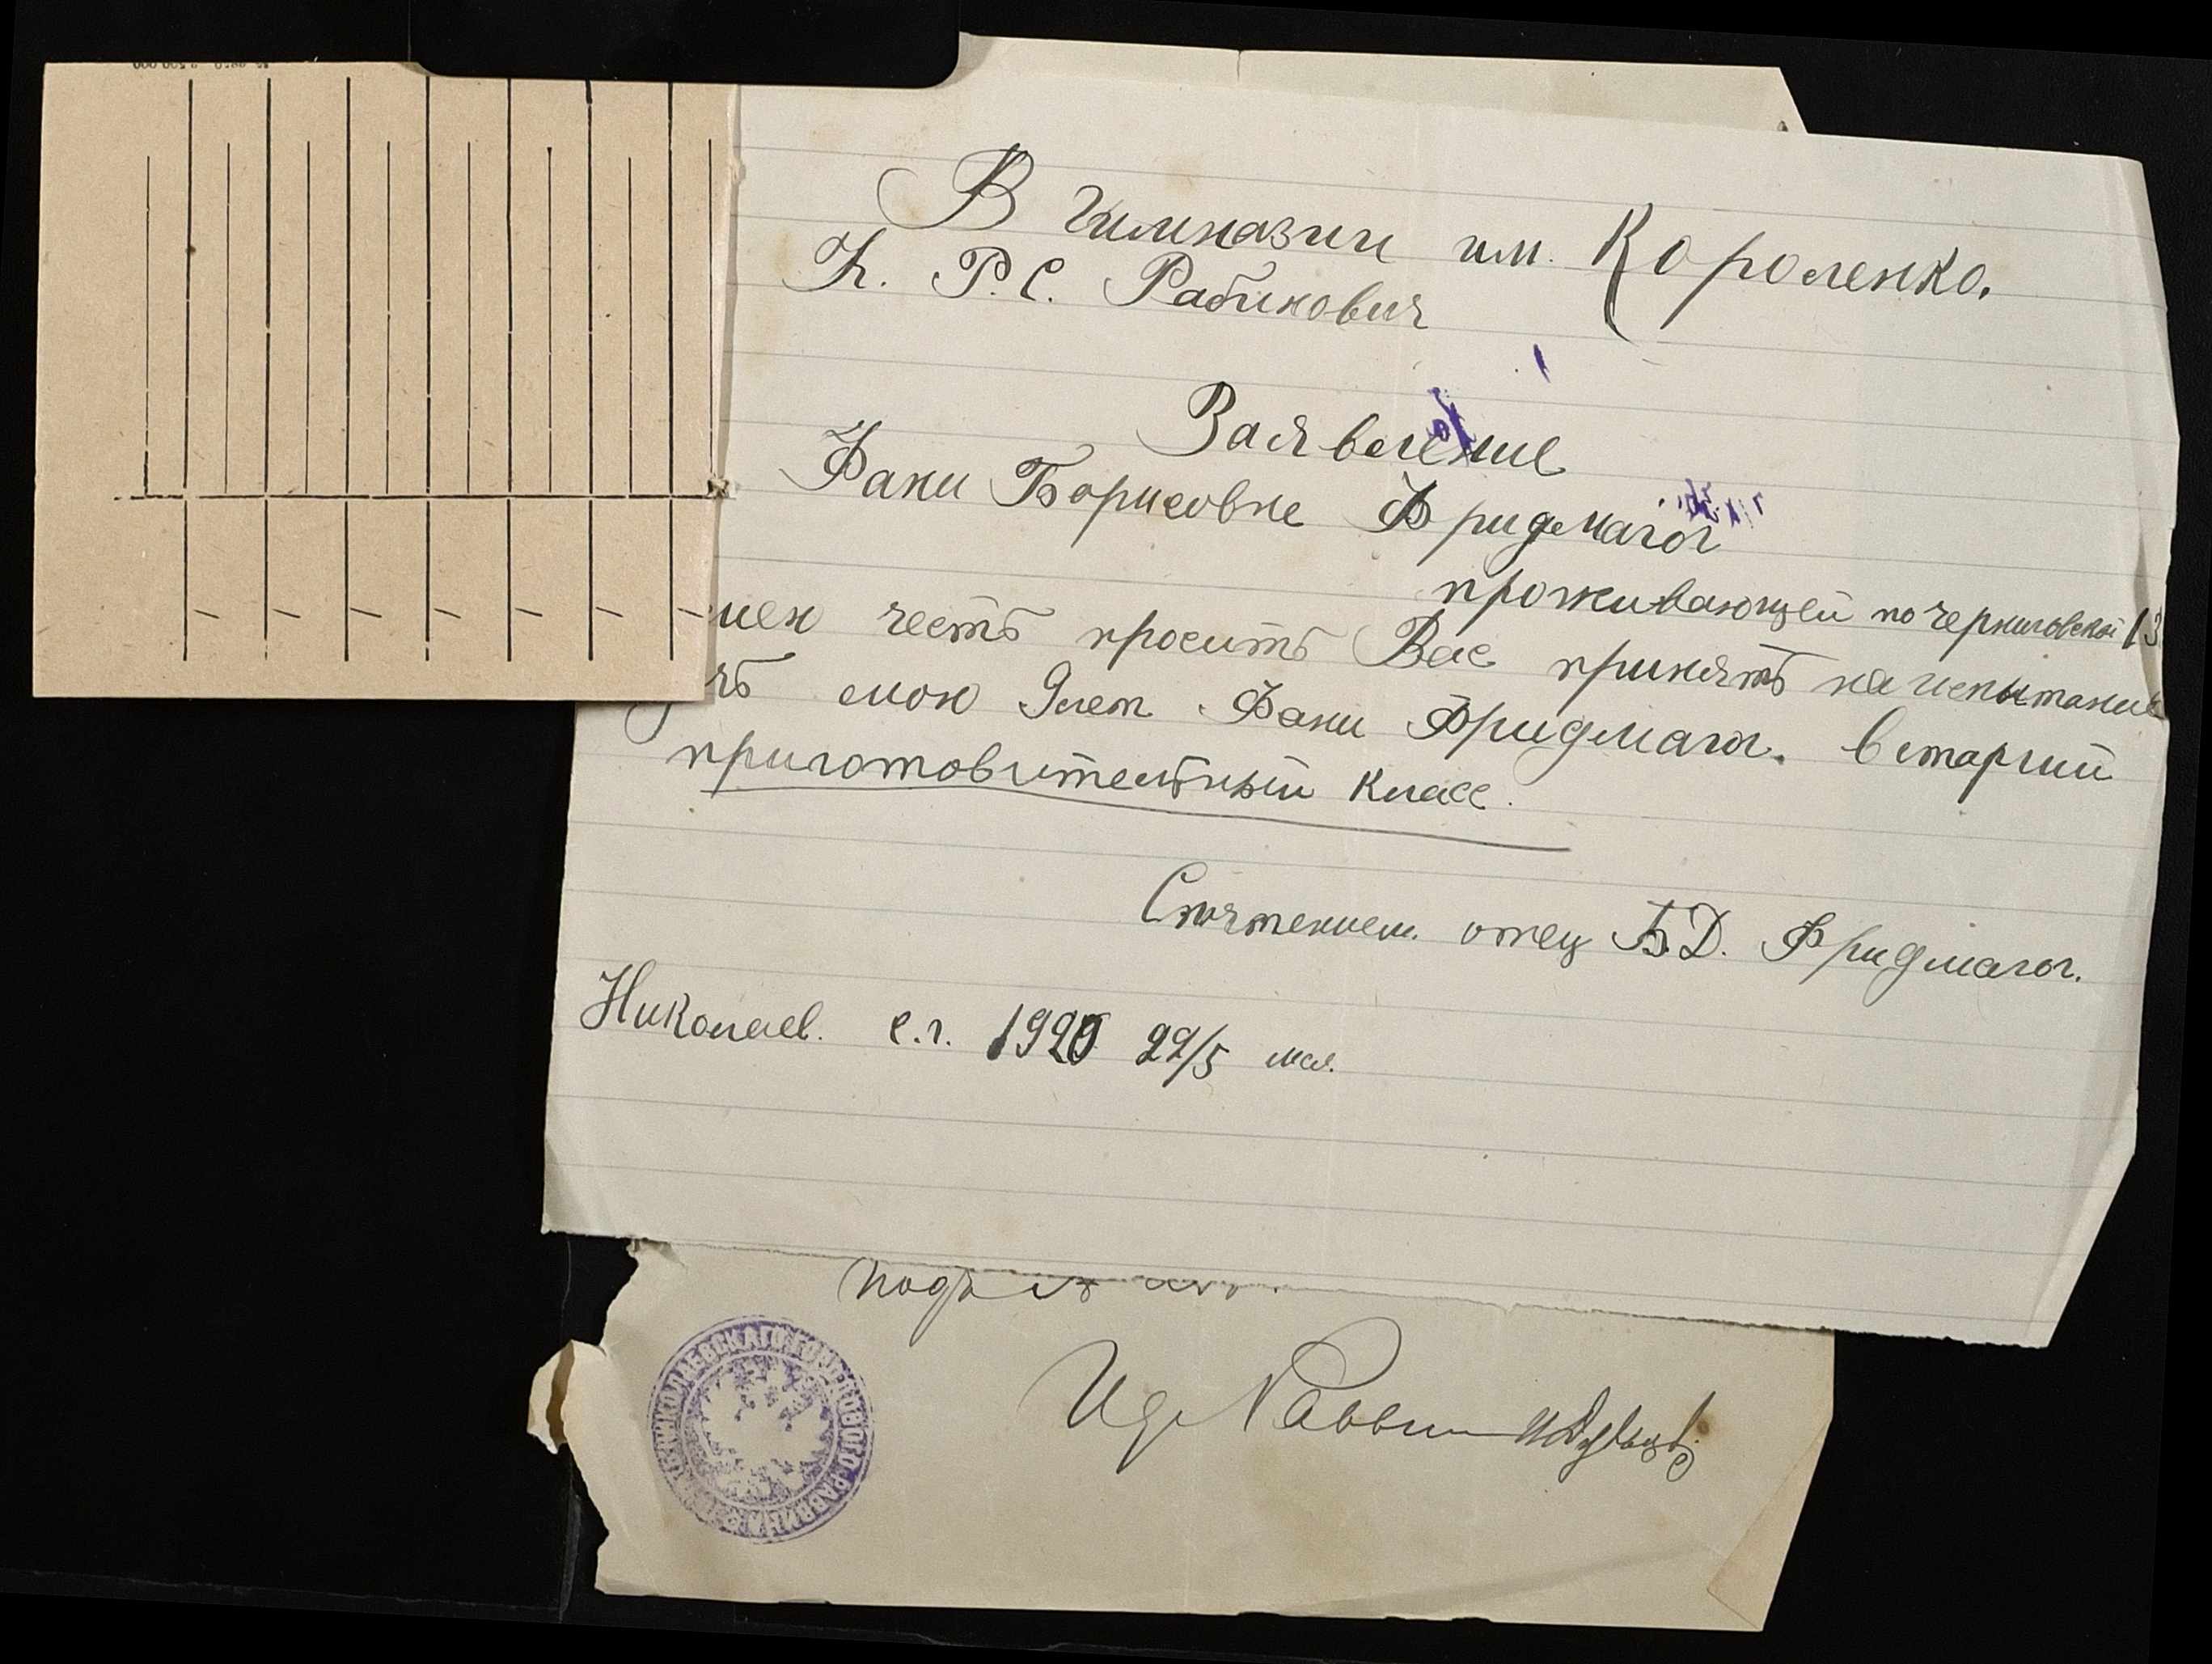 В Гимназии им. Короленко.
К. Р. С. Рабинович
Заявление
Фани Борисовне Фридмагог
проживающей по Черниговской 13
честь просить Вас принять на испытание
мою Фани Фридмагог. в старший
приготовительный класс.
С почтением отец Б.Д. Фридмагог.
Николаев. с.г. 1920 22/5 мая.
НИКОЛАЕВСКАГО ГОРОДОВОГО РАВВИНА